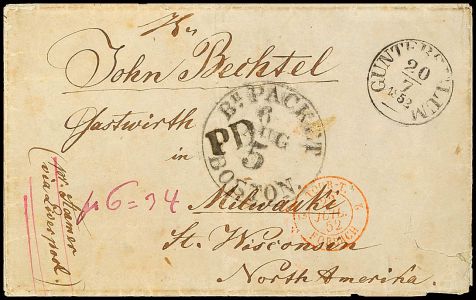 Hr.
John Bechtel
Gastwirth
in
Milwaukie
St. Wisconsin
North Amerika.
pr. Steamer
via Liverpool.
PD
Br. PACKET
6
AUG
5
BOSTON.
GUNTERSBLUM
20
7
1852
52